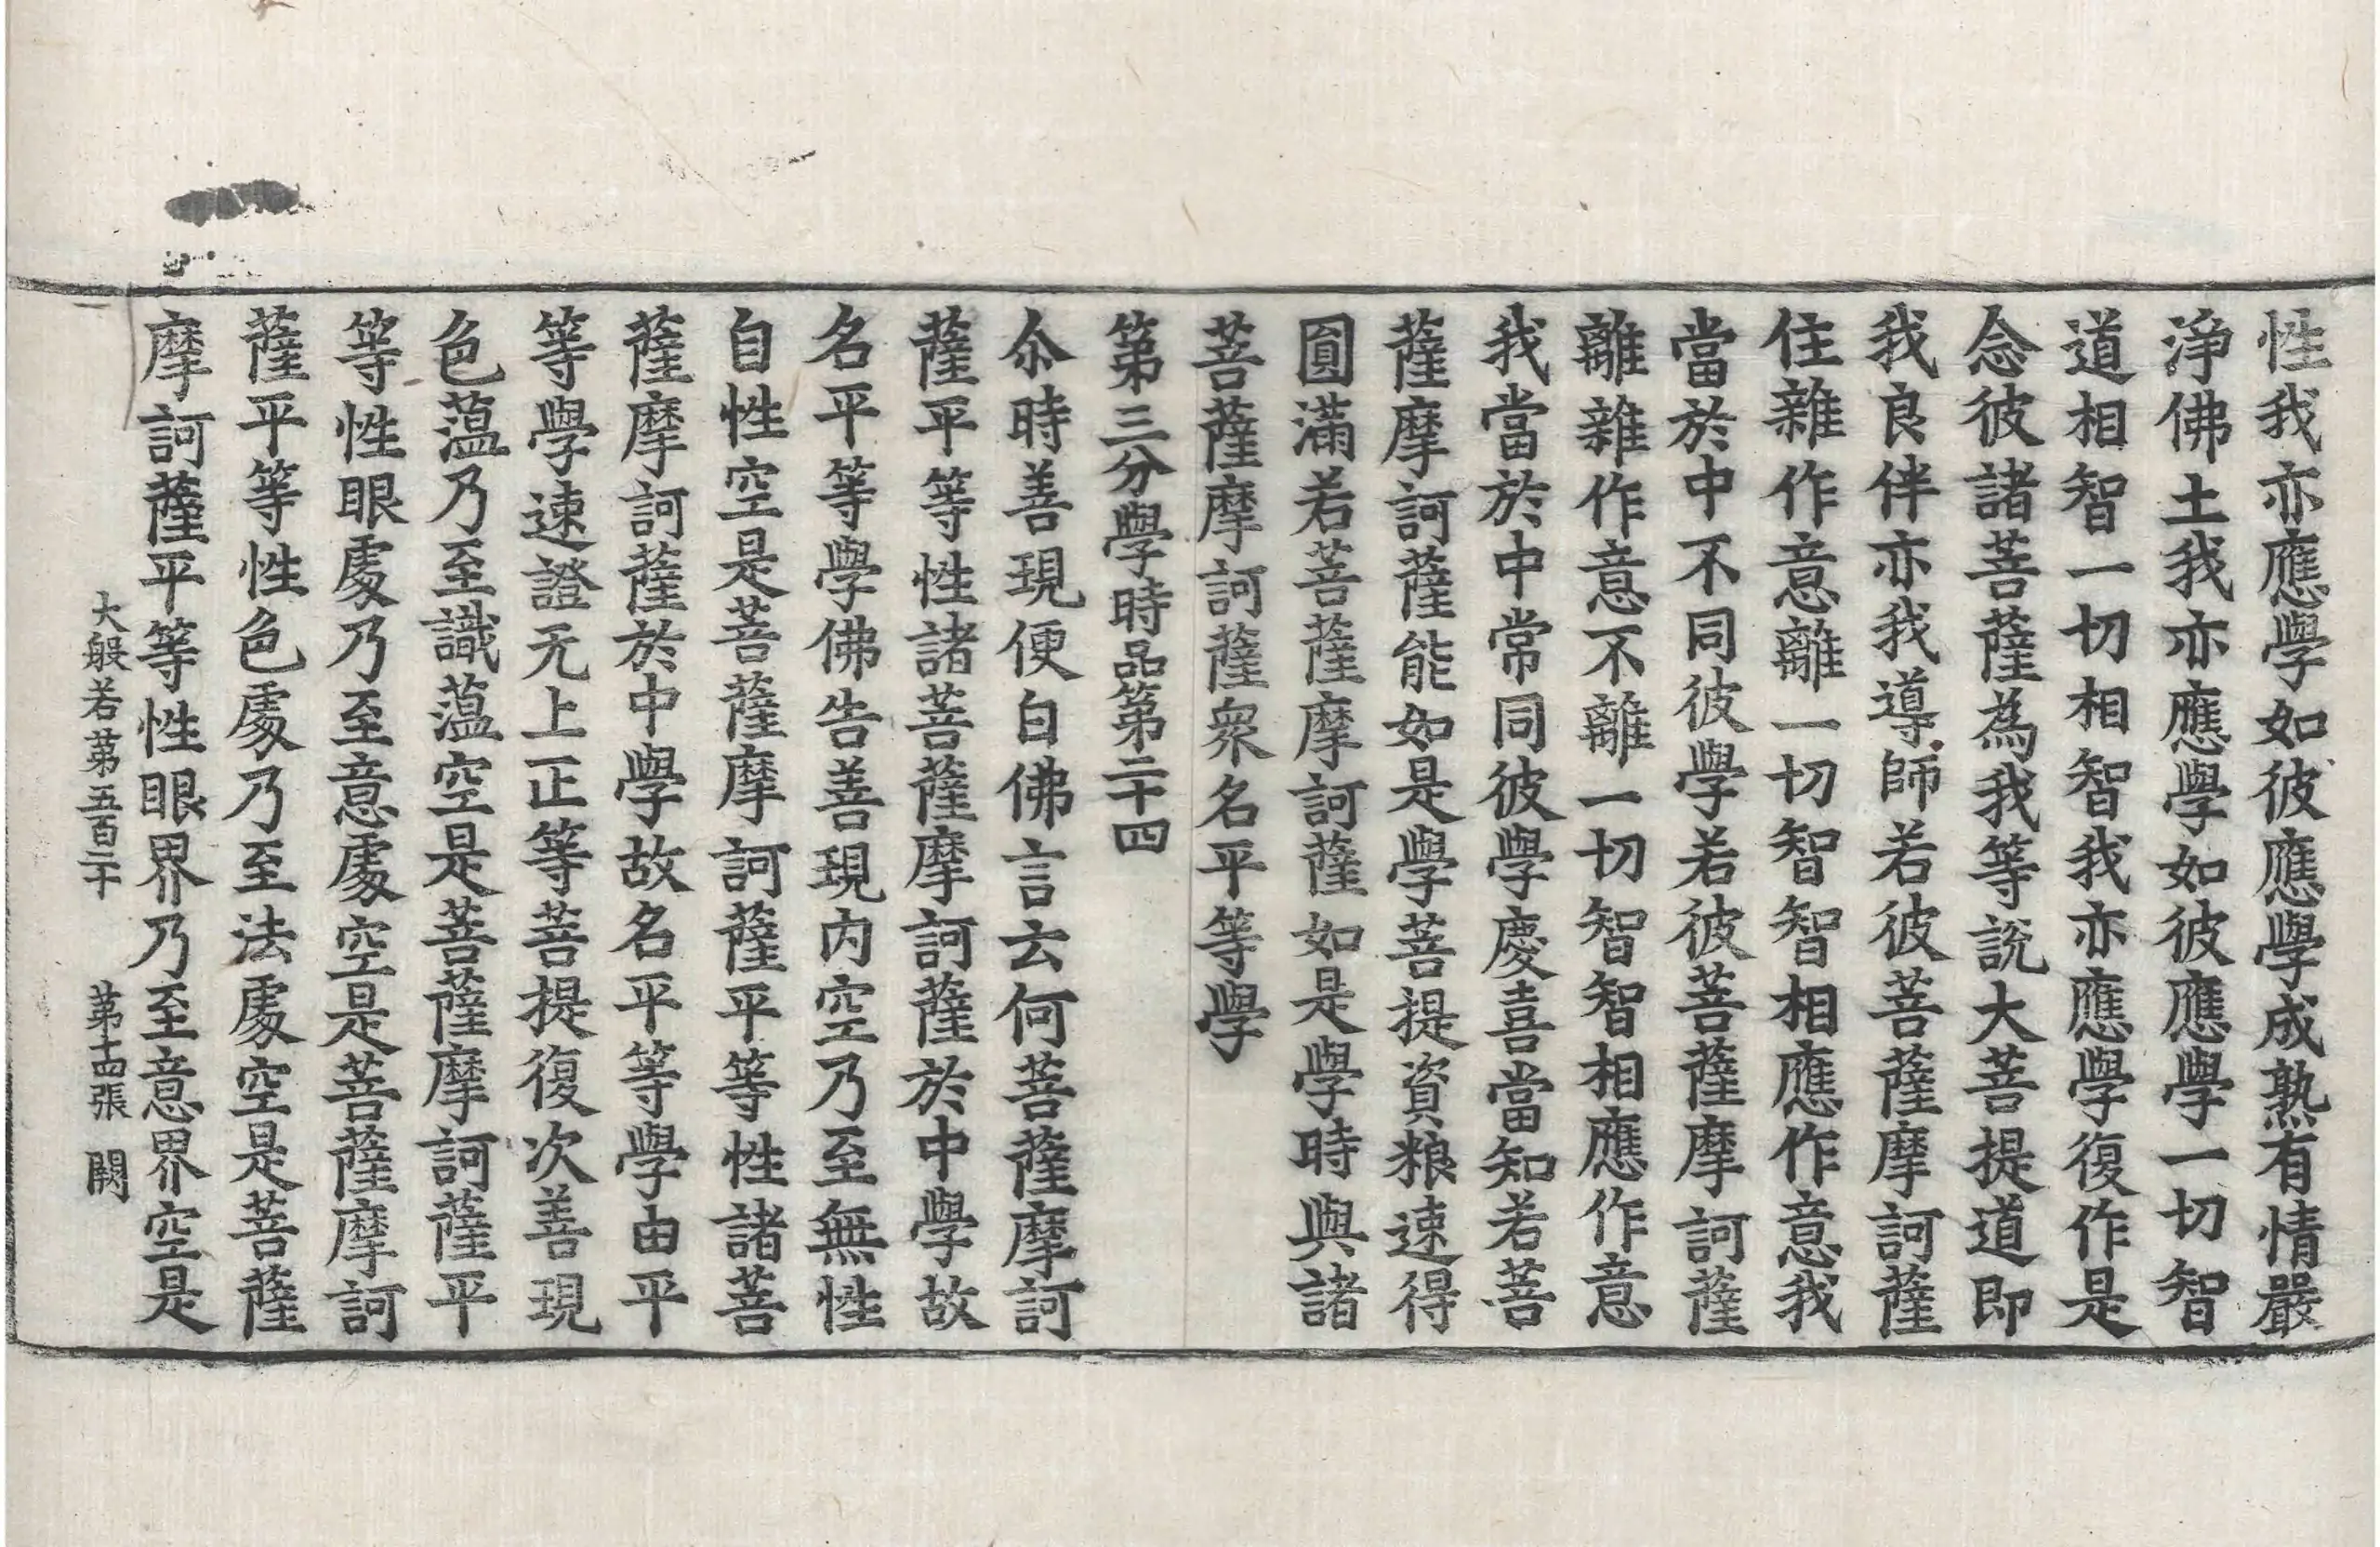 性我亦應學如彼應學成熟有情嚴
淨佛土我亦應學如彼應學一切智
道相智一切相智我亦應學復作是
念彼諸菩薩為我等說大菩提道即
我良伴亦我導師若彼菩薩摩訶薩
住雜作意離一切智智相應作意我
當於中不同彼學若彼菩薩摩訶薩
離雜作意不離一切智智相應作意
我當於中常同彼學慶喜當知若菩
薩摩訶薩能如是學菩提資粮速得
圓滿若菩薩摩訶薩如是學時與諸
菩薩摩訶薩衆名平等學
第三分學時品第二十四
尒時善現便白佛言云何菩薩摩訶
薩平等性諸菩薩摩訶薩於中學故
名平等學佛告善現内空乃至無性
自性空是菩薩摩訶薩平等性諸菩
薩摩訶薩於中學故名平等學由平
等學速證无上正等菩提復次善現
色薀乃至識薀空是菩薩摩訶薩平
等性眼處乃至意處空是菩薩摩訶
薩平等性色處乃至法處空是菩薩
摩訶薩平等性眼界乃至意界空是
大般若第五百二十 第十四張 闕